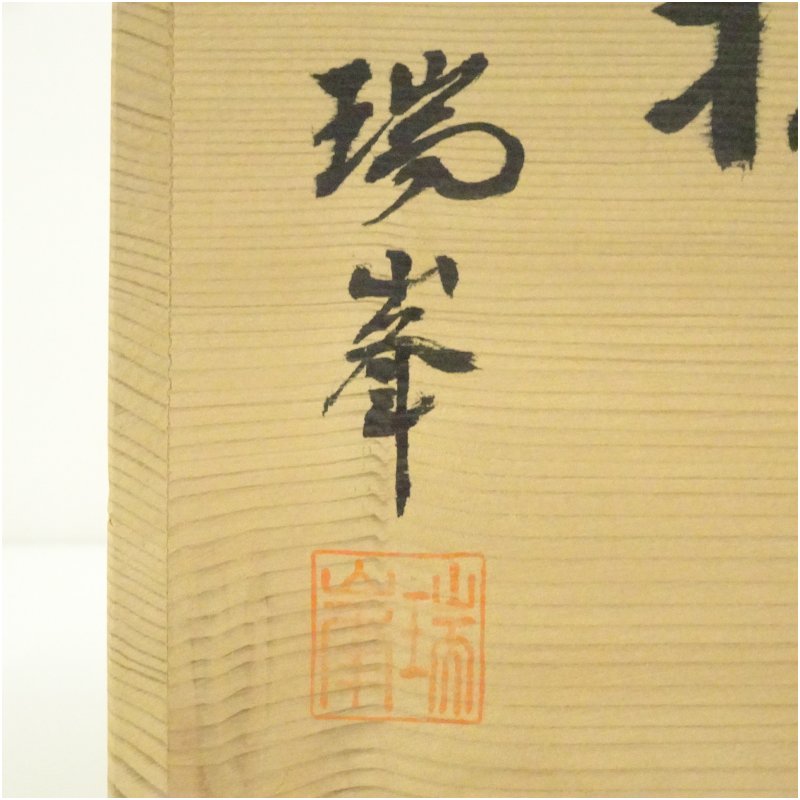 瑞峯
瑞峯